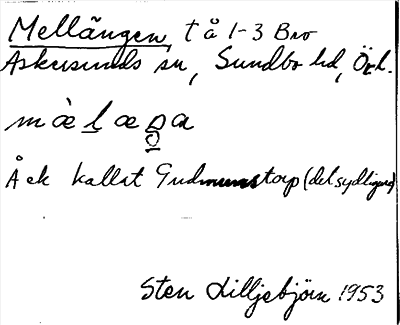 Mellängen, t å 1-3 Bro
Askersunds sn, Sundbo hd, Ör l.
Å ek kallat Gudmunstorp (del sydligare)
Sten Lilljebjörn 1953